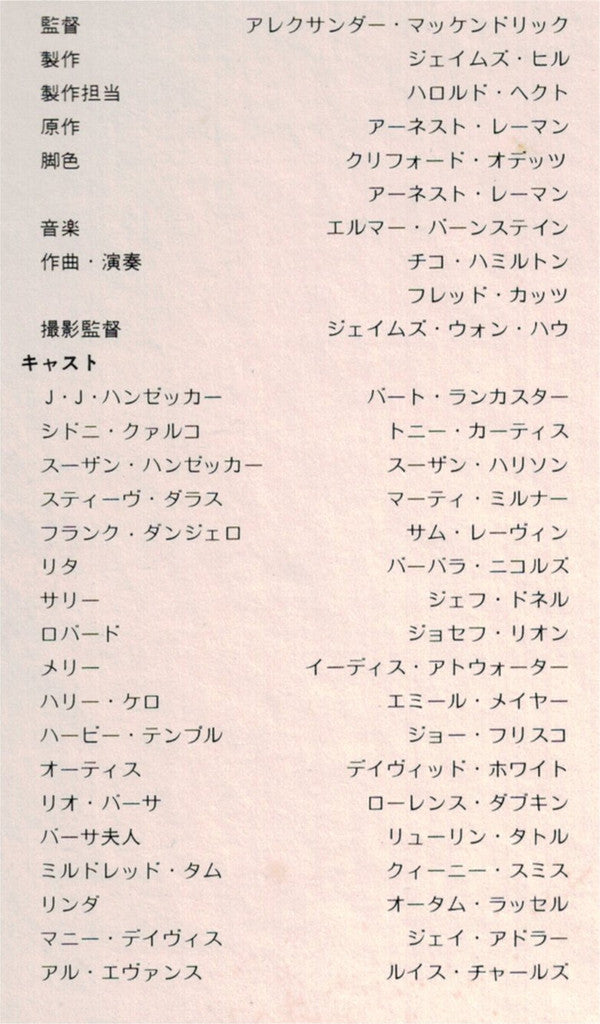 監督 アレクサンダー・マッケンドリック
製作 ジェイムズ・ヒル
製作担当 ハロルド・ヘクト
原作 アーネスト・レーマン
脚色 クリフォード・オデッツ
アーネスト・レーマン
音楽 エルマー・バーンステイン
作曲・演奏 チコ・ハミルトン
フレッド・カッツ
撮影監督 ジェイムズ・ウォン・ハウ
キャスト
J・J・ハンゼッカー バート・ランカスター
シドニ・クァルコ トニー・カーティス
スーザン・ハンゼッカー スーザン・ハリソン
スティーヴ・ダラス マーティ・ミルナー
フランク・ダンジェロ サム・レーヴィン
リタ バーバラ・ニコルズ
サリー ジェフ・ドネル
ロバード ジョセフ・リオン
メリー イーディス・アトウォーター
ハリー・ケロ エミール・メイヤー
ハービー・テンプル ジョー・フリスコ
オーティス デイヴィッド・ホワイト
リオ・バーサ ローレンス・ダブキン
バーサ夫人 リューリン・タトル
ミルドレッド・タム クィーニー・スミス
リンダ オータム・ラッセル
マニー・デイヴィス ジェイ・アドラー
アル・エヴァンス ルイス・チャールズ